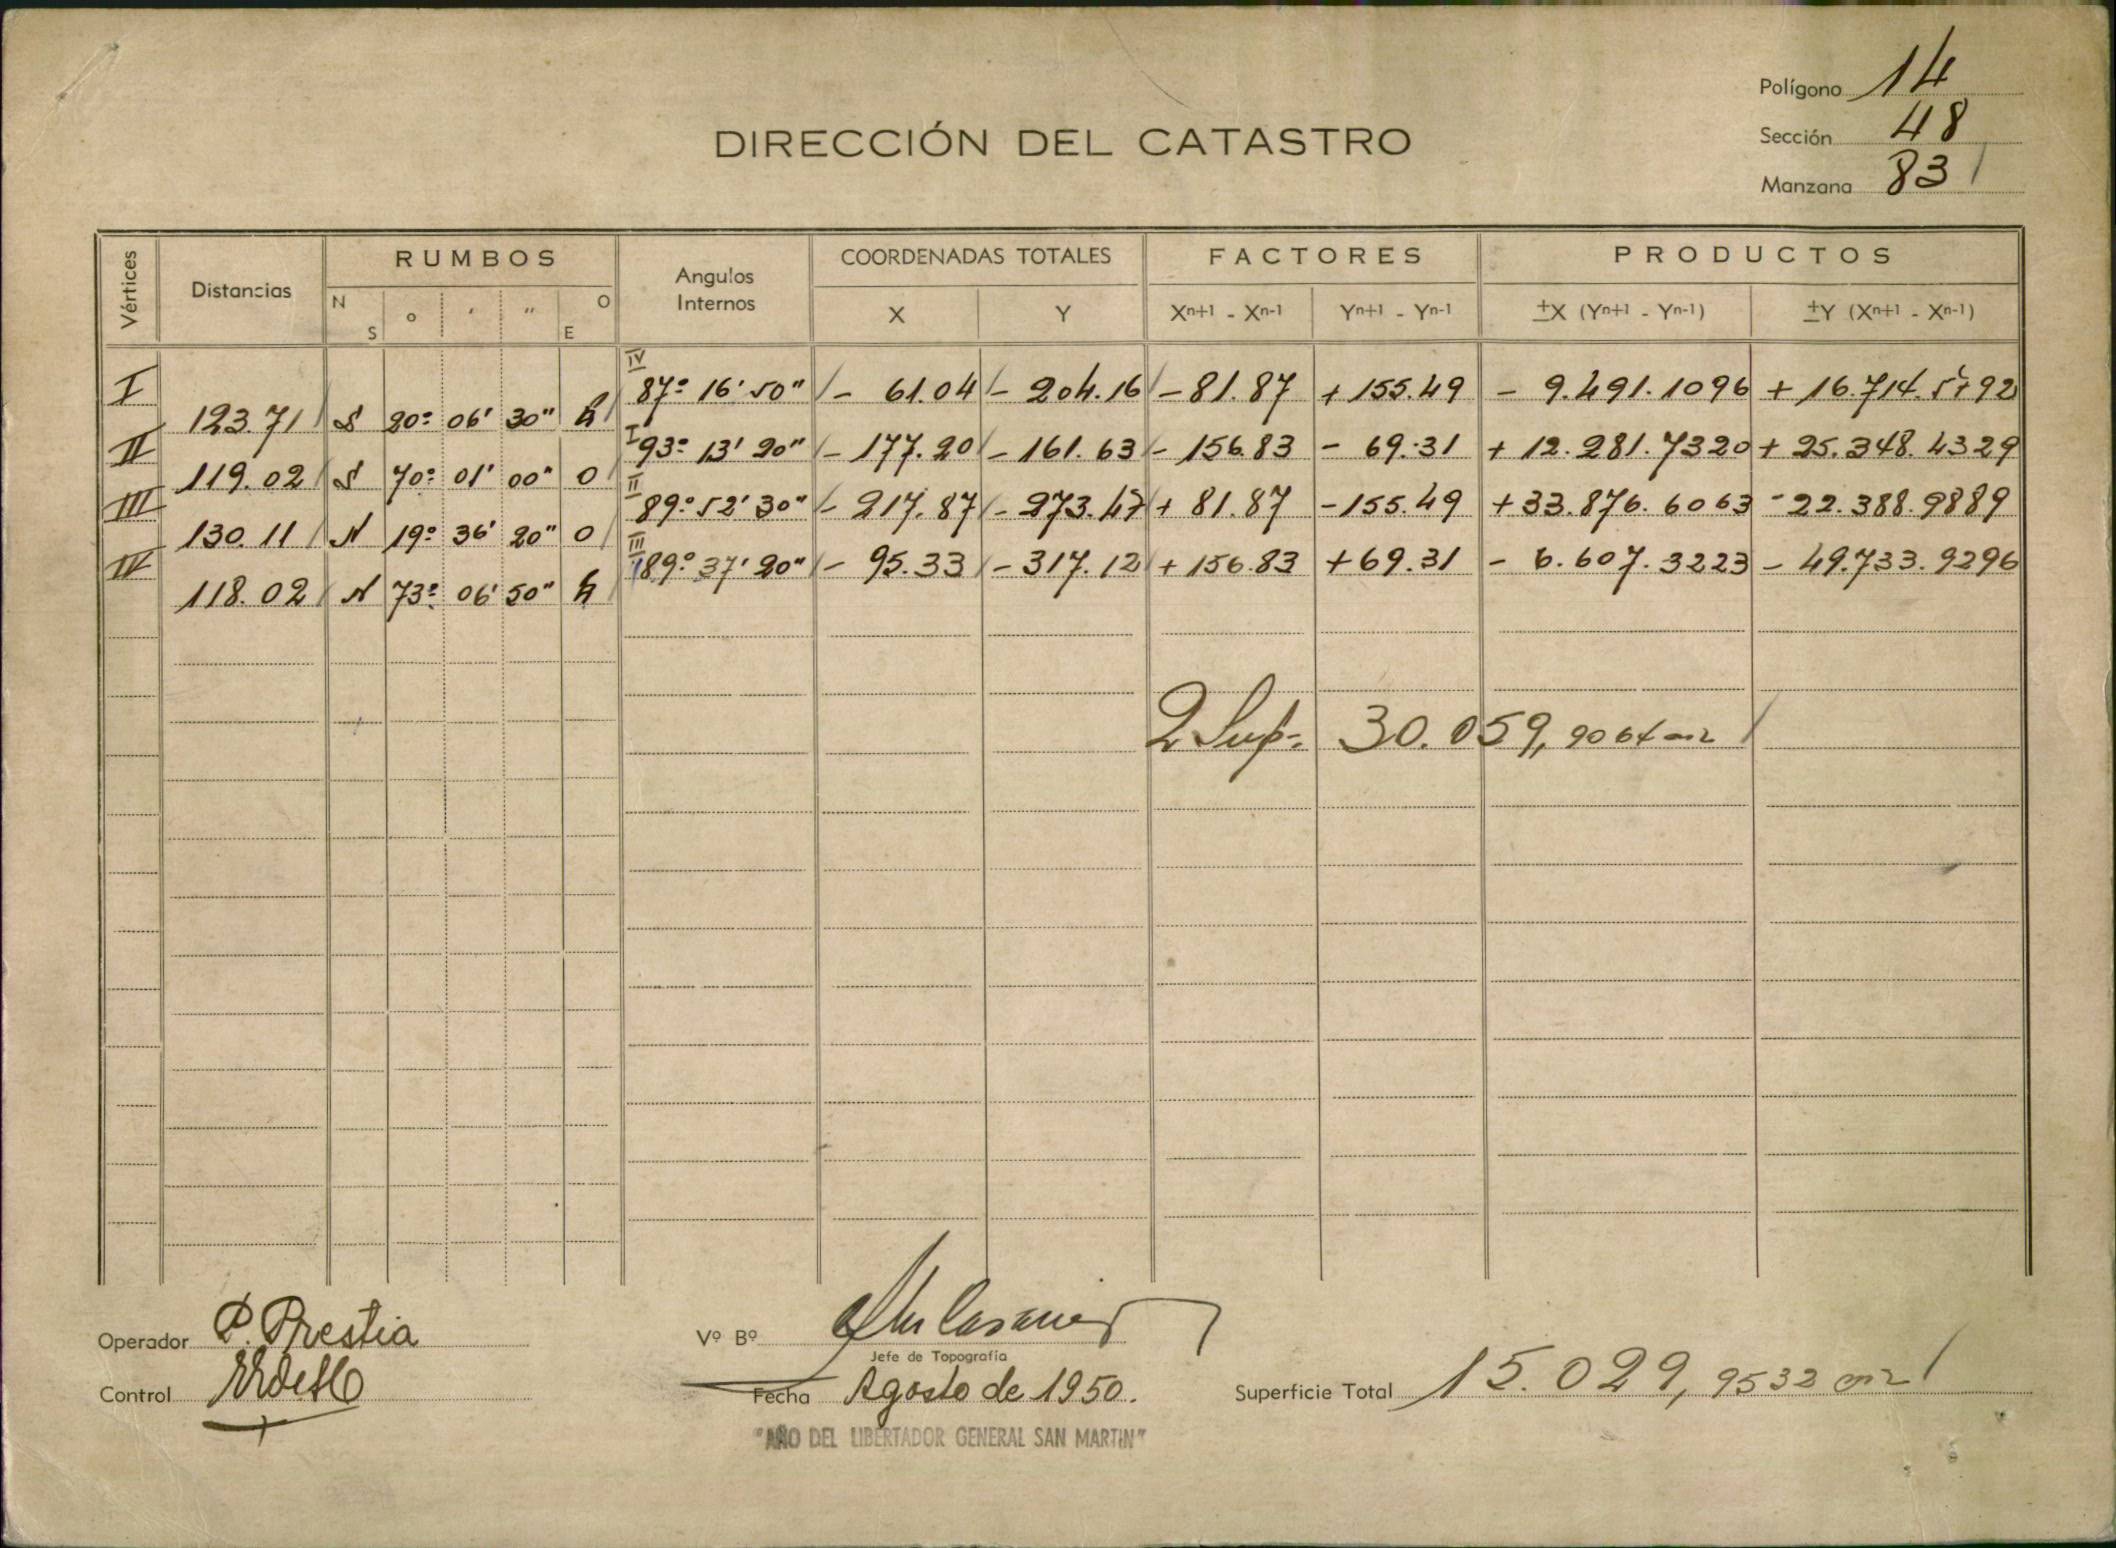 Polígono 14
Sección 48
Manzana 83
DIRECCIÓN DEL CATASTRO
Vértices Distancias RUMBOS Angulos Internos COORDENADAS TOTALES FACTORES PRODUCTOS
N S ° ' " O E X Y Xn+1 - Xn-1 Yn+1 - Yn-1 ±X (Yn+1 - Yn-1) ±Y (Xn+1 - Xn-1)
I IV 87° 16' 50" - 61.04 - 204.16 - 81.87 + 155.49 - 9.491.1096 + 16.714.5792
123.71 S 20° 06' 30" E
II I 93° 13' 20" - 177.20 - 161.63 - 156.83 - 69.31 + 12.281.7320 + 25.348.4329
119.02 S 70° 01' 00" O
III II 89° 52' 30" - 217.87 - 273.47 + 81.87 - 155.49 + 33.876.6063 - 22.388.9889
130.11 N 19° 36' 20" O
IV III 89° 37' 20" - 95.33 - 317.12 + 156.83 + 69.31 - 6.607.3223 - 49.733.9296
118.02 N 73° 06' 50" E
2 Sup= 30.059,9064 m2
Operador P. Prestia
Vº Bº
Jefe de Topografía
Control
Fecha Agosto de 1950.
Superficie Total 15.029,9532 m2
"AÑO DEL LIBERTADOR GENERAL SAN MARTIN"